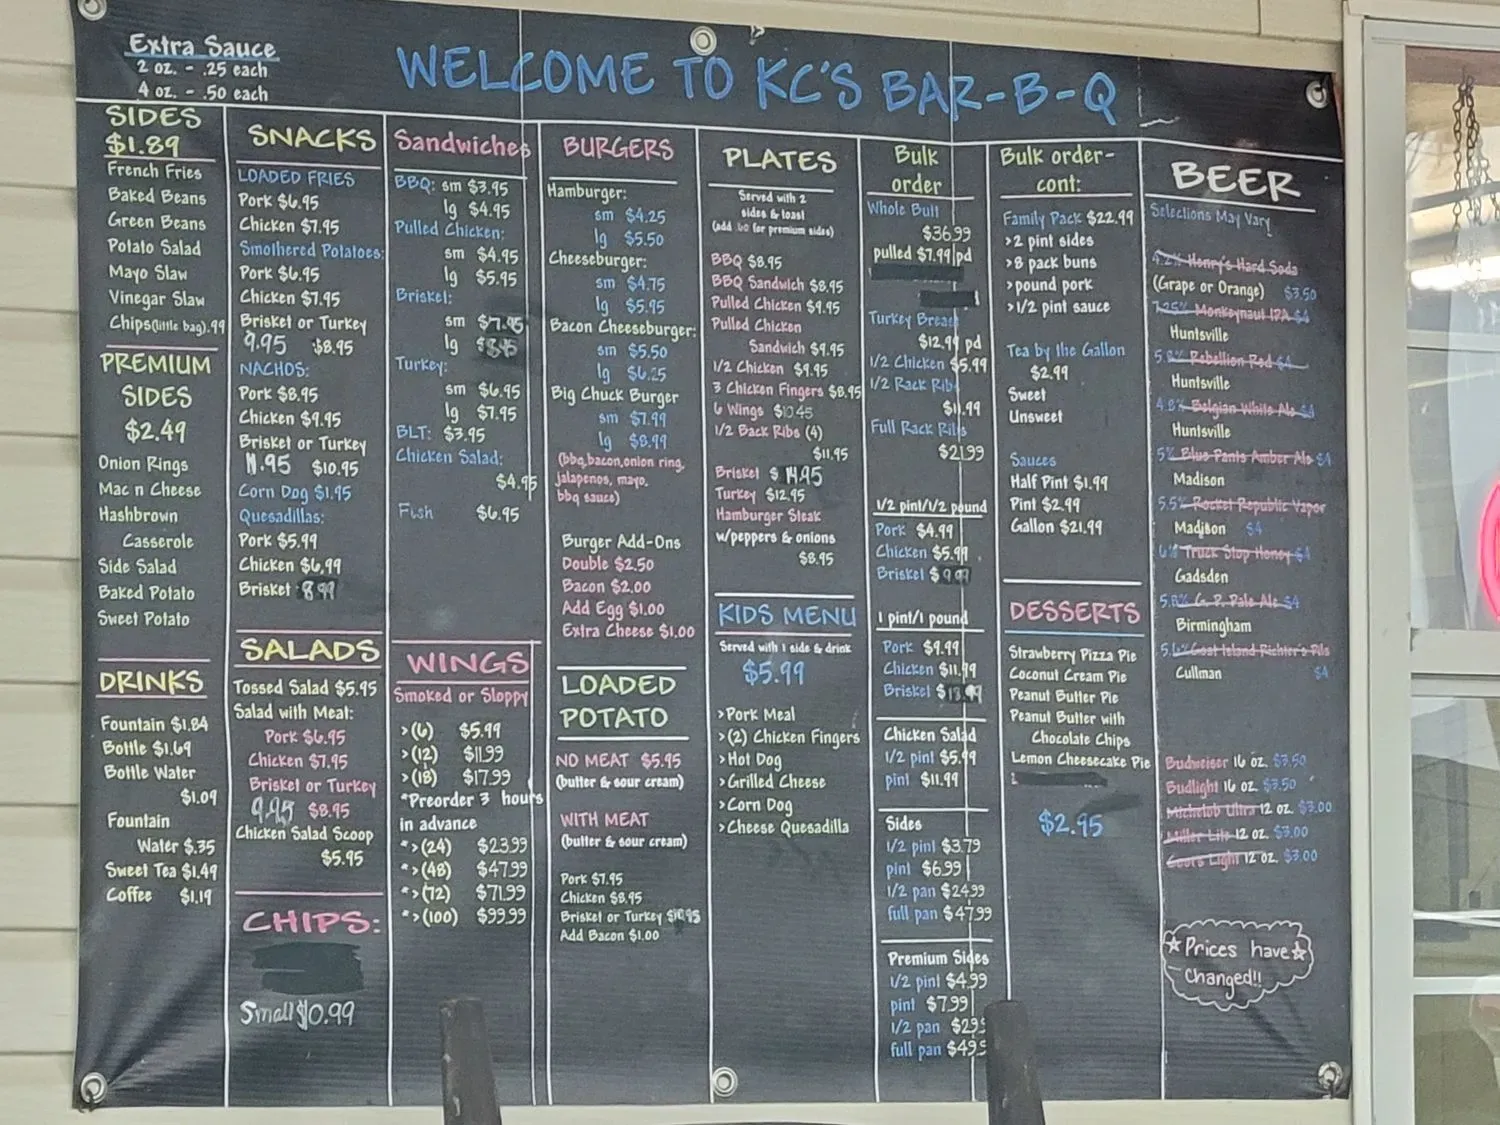 Extra Sauce
2 oz. - .25 each
4 oz. - .50 each
WELCOME TO KC'S BAR-B-Q
SIDES
$1.89
French Fries
Baked Beans
Green Beans
Potato Salad
Mayo Slaw
Vinegar Slaw
Chips(little bag).99
PREMIUM
SIDES
$2.49
Onion Rings
Mac n Cheese
Hashbrown
Casserole
Side Salad
Baked Potato
Sweet Potato
DRINKS
Fountain $1.84
Bottle $1.69
Bottle Water
$1.09
Fountain
Water $.35
Sweet Tea $1.49
Coffee $1.19
SNACKS
LOADED FRIES
Pork $6.95
Chicken $7.95
Smothered Potatoes:
Pork $6.95
Chicken $7.95
Brisket or Turkey
9.95 $8.95
NACHOS:
Pork $8.95
Chicken $9.95
Brisket or Turkey
11.95 $10.95
Corn Dog $1.95
Quesadillas:
Pork $5.99
Chicken $6.99
Brisket 8.99
SALADS
Tossed Salad $5.95
Salad with Meat:
Pork $6.95
Chicken $7.95
Brisket or Turkey
9.95 $8.95
Chicken Salad Scoop
$5.95
CHIPS:
Small $0.99
Sandwiches
BBQ: sm $3.95
lg $4.95
Pulled Chicken:
sm $4.95
lg $5.95
Brisket:
sm $7.95
lg $8.95
Turkey:
sm $6.95
lg $7.95
BLT: $3.95
Chicken Salad:
$4.95
Fish $6.95
WINGS
Smoked or Sloppy
>(6) $5.99
>(12) $11.99
>(18) $17.99
*Preorder 3 hours
in advance
*>(24) $23.99
*>(48) $47.99
*>(72) $71.99
*>(100) $99.99
BURGERS
Hamburger:
sm $4.25
lg $5.50
Cheeseburger:
sm $4.75
lg $5.95
Bacon Cheeseburger:
sm $5.50
lg $6.25
Big Chuck Burger
sm $7.99
lg $8.99
(bbq,bacon,onion ring,
jalapenos, mayo,
bbq sauce)
Burger Add-Ons
Double $2.50
Bacon $2.00
Add Egg $1.00
Extra Cheese $1.00
LOADED
POTATO
NO MEAT $5.95
(butter & sour cream)
WITH MEAT
(butter & sour cream)
Pork $7.95
Chicken $8.95
Brisket or Turkey $10.95
Add Bacon $1.00
PLATES
Served with 2
sides & toast
(add .60 for premium sides)
BBQ $8.95
BBQ Sandwich $8.95
Pulled Chicken $9.95
Pulled Chicken
Sandwich $9.95
1/2 Chicken $9.95
3 Chicken Fingers $8.95
6 Wings $10.45
1/2 Back Ribs (4)
$11.95
Brisket $14.95
Turkey $12.95
Hamburger Steak
w/peppers & onions
$8.95
KIDS MENU
Served with 1 side & drink
$5.99
>Pork Meal
>(2) Chicken Fingers
>Hot Dog
>Grilled Cheese
>Corn Dog
>Cheese Quesadilla
Bulk
order
Whole Butt
$36.99
pulled $7.99 pd
Turkey Breast
$12.99 pd
1/2 Chicken $5.99
1/2 Rack Ribs
$11.99
Full Rack Ribs
$21.99
1/2 pint/1/2 pound
Pork $4.99
Chicken $5.99
Brisket $9.99
1 pint/1 pound
Pork $9.99
Chicken $11.99
Brisket $18.99
Chicken Salad
1/2 pint $5.99
pint $11.99
Sides
1/2 pint $3.79
pint $6.99
1/2 pan $24.99
full pan $47.99
Premium Sides
1/2 pint $4.99
pint $7.99
1/2 pan
full pan
Bulk order-
cont:
Family Pack $22.99
>2 pint sides
>8 pack buns
>pound pork
>1/2 pint sauce
Tea by the Gallon
$2.99
Sweet
Unsweet
Sauces
Half Pint $1.99
Pint $2.99
Gallon $21.99
DESSERTS
Strawberry Pizza Pie
Coconut Cream Pie
Peanut Butter Pie
Peanut Butter with
Chocolate Chips
Lemon Cheesecake Pie
$2.95
BEER
Selections May Vary
4.2% Henry's Hard Soda
(Grape or Orange) $3.50
7.25% Monkeynaut IPA $4
Huntsville
5.8% Rebellion Red $4
Huntsville
4.8% Belgian White Ale $4
Huntsville
5% Blue Pants Amber Ale $4
Madison
5.5% Rocket Republic Vapor
Madison $4
6% Truck Stop Honey $4
Gadsden
G. P. Pale Ale $4
Birmingham
Goat Island Richter's Pils
Cullman $4
Budweiser 16 oz. $3.50
Budlight 16 oz. $3.50
Michelob Ultra 12 oz. $3.00
Miller Lite 12 oz. $3.00
Coors Light 12 oz. $3.00
Prices have
Changed!!